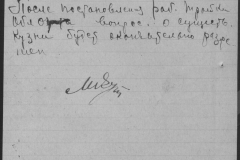 После постановления раб. тройки
вопрос. о существ.
Кузни будет окончательно разре
шен